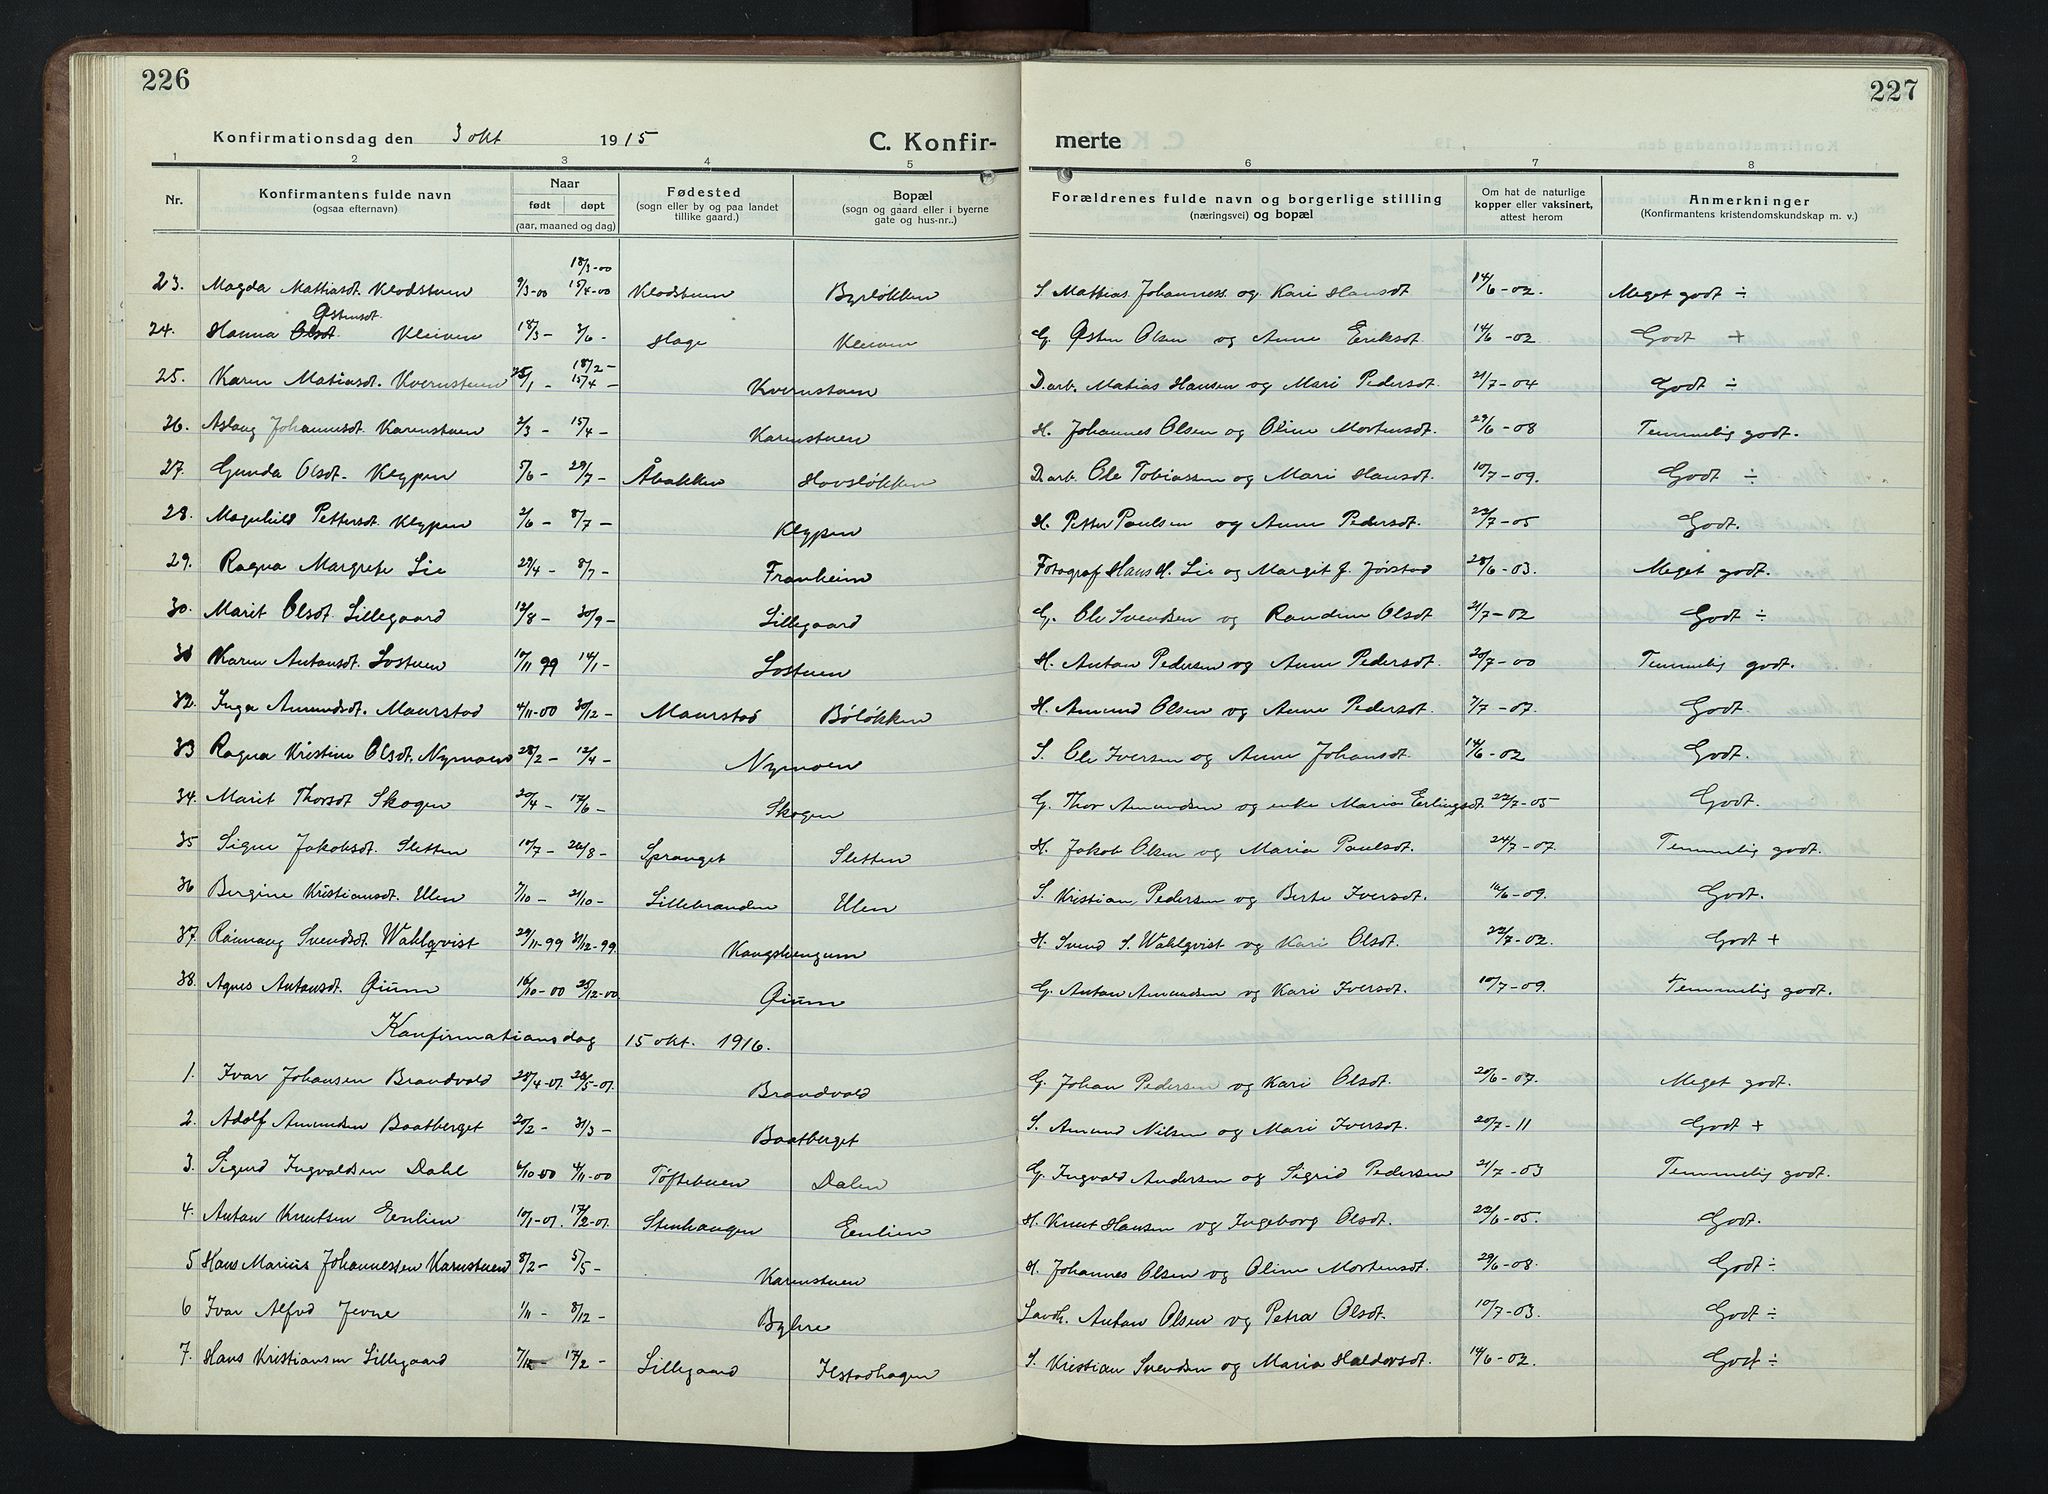 226
227
Konfirmationsdag den 3 okt 1915
C. Konfir-
merte
1 2 3 4 5 6 7 8
Nr.
Konfirmantens fulde navn
(ogsaa efternavn)
Naar
født døpt
(aar, maaned og dag)
Fødested
(sogn eller by og paa landet
tillike gaard.)
Bopæl
(sogn og gaard eller i byerne
gate og hus-nr.)
Forældrenes fulde navn og borgerlige stilling
(næringsvei) og bopæl
Om hat de naturlige
kopper eller vaksinert,
attest herom
Anmerkninger
(Konfirmantens kristendomskundskap m. v.)
18/3-00
23. Magda Mattiasdt. Klodstuen 9/3-00 15/4-00 Klodstuen Byrløkken S. Mattias Johanness. og Kari Hansdt 14/6-02. Meget godt ÷
Østensdt.
24. Hanna Olsdt. Kleiven 18/3- 3/6- Hage Kleiven G. Østen Olsen og Anne Eriksdt 14/6-02 Godt +
18/2-
25. Karen Matiasdt. Kvernstuen 25/1- 15/4- Kvernstuen Darb. Matias Hansen og Mari Pedersdt. 21/7-04 Godt ÷
26. Aslaug Johannesdt. Karenstuen 2/3- 15/4- Karenstuen H. Johannes Olsen og Oline Mortensdt. 29/6-08 Temmelig godt.
27. Gunda Olsdt. Klypen 5/6- 29/7- Åbakken Hovsløkken Darb. Ole Tobiassen og Mari Hansdt 10/7-09. Godt ÷
28. Magnhild Pettersdt. Klypen 2/6- 8/7- Klypen H. Petter Paulsen og Anne Pedersdt. 22/7-05 Godt.
29. Ragna Margrete Lie 29/4- 8/7- Franheim Fotograf Hans H. Lie og Margit J. Jørstad 28/6-03. Meget godt.
30. Marit Olsdt. Lillegaard 12/8- 30/9- Lillegaard G. Ole Svendsen og Randine Olsdt 21/7-02 Godt ÷
31 Karen Antonsdt. Lostuen 10/11 99 14/1- Lostuen H. Anton Pedersen og Anne Pedersdt. 20/7-00 Temmelig godt.
32. Inga Amundsdt. Maurstad 4/11-00 30/12- Maurstad Bøløkken H. Amund Olsen og Anne Pedersdt. 7/7-07. Godt.
33 Ragna Kristine Olsdt. Nymoen 28/2- 12/4- Nymoen S. Ole Iversen og Anne Johansdt. 14/6-02 Godt.
34. Marit Thorsdt Skogen 20/4- 17/6- Skogen G. Thor Amundsen og enke Maria Erlingsdt. 22/7-05 Godt.
35 Signe Jakobsdt. Sletten 10/7- 26/8- Spranget Sletten H. Jakob Olsen og Maria Paulsdt. 24/7-07. Temmelig godt.
36 Bergine Kristiansdt. Ulen 7/10- 21/10- Lillebranden Ulen S. Kristian Pedersen og Berte Iversdt. 16/6-09. Godt.
37. Rønnaug Svendsdt. Wahlqvist 29/11-99 31/12-99 Kongslungum H. Svend S. Wahlqvist og Kari Olsdt. 22/7-02. Godt +
38. Agnes Antonsdt. Øium 16/10-00 25/12-00 Øium G. Anton Amundsen og Kari Iversdt. 10/7-09. Temmelig godt.
Konfirmationsdag 15 okt. 1916.
1. Ivar Johansen Brandvold 28/4-01. 26/5-01. Brandvold G. Johan Pedersen og Kari Olsdt. 20/6-07. Meget godt.
2. Adolf Amundsen Baatberget 20/2- 31/3- Baatberget S. Amund Nilsen og Mari Iversdt. 20/7-11 Godt +
3. Sigurd Ingvaldsen Dahl 6/10-00 4/11-00 Tøftebuen Dalen G. Ingvald Andersen og Sigrid Pedersen 21/7-03 Temmelig godt.
4. Anton Knutsen Eenlien 10/1-01. 17/2-01. Stenhaugen Eenlien H. Knut Hansen og Ingeborg Olsdt. 22/6-05. Godt.
5 Hans Marius Johannessen Karenstuen 8/2- 5/5- Karenstuen H. Johannes Olsen og Oline Mortensdt. 29/6-08. Godt ÷
6 Ivar Alfred Jevne 1/11- 8/12- Byhre Landh. Anton Olsen og Petra Olsdt. 10/7-03. Godt ÷
7. Hans Kristiansen Lillegaard 17/2- Lillegaard Ilstadhagen S. Kristian Svendsen og Maria Haldorsdt. 14/6-02. Godt ÷